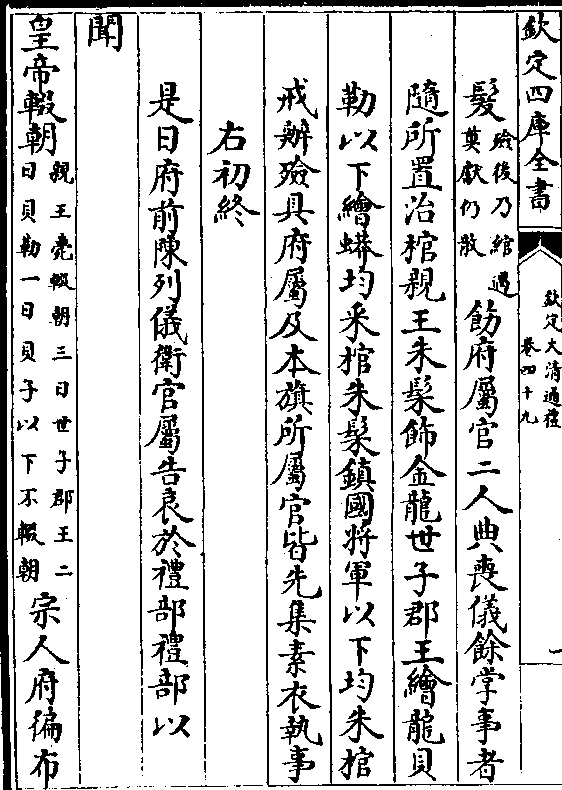 欽定四庫全書
欽定大清通禮
卷四十九
一
髮殮後乃綰遇
奠獻仍散飭府屬官二人典喪儀餘掌事者
隨所置治棺親王朱髹飾金龍世子郡王繪龍貝
勒以下繪蟒均采棺朱髹鎮國將軍以下均朱棺
戒辦殮具府屬及本旗所屬官皆先集素衣執事
右初終
是日府前陳列儀衛官屬告喪於禮部禮部以
聞
皇帝輟朝親王薨輟朝三日世子郡王二
日貝勒一日貝子以下不輟朝宗人府徧布